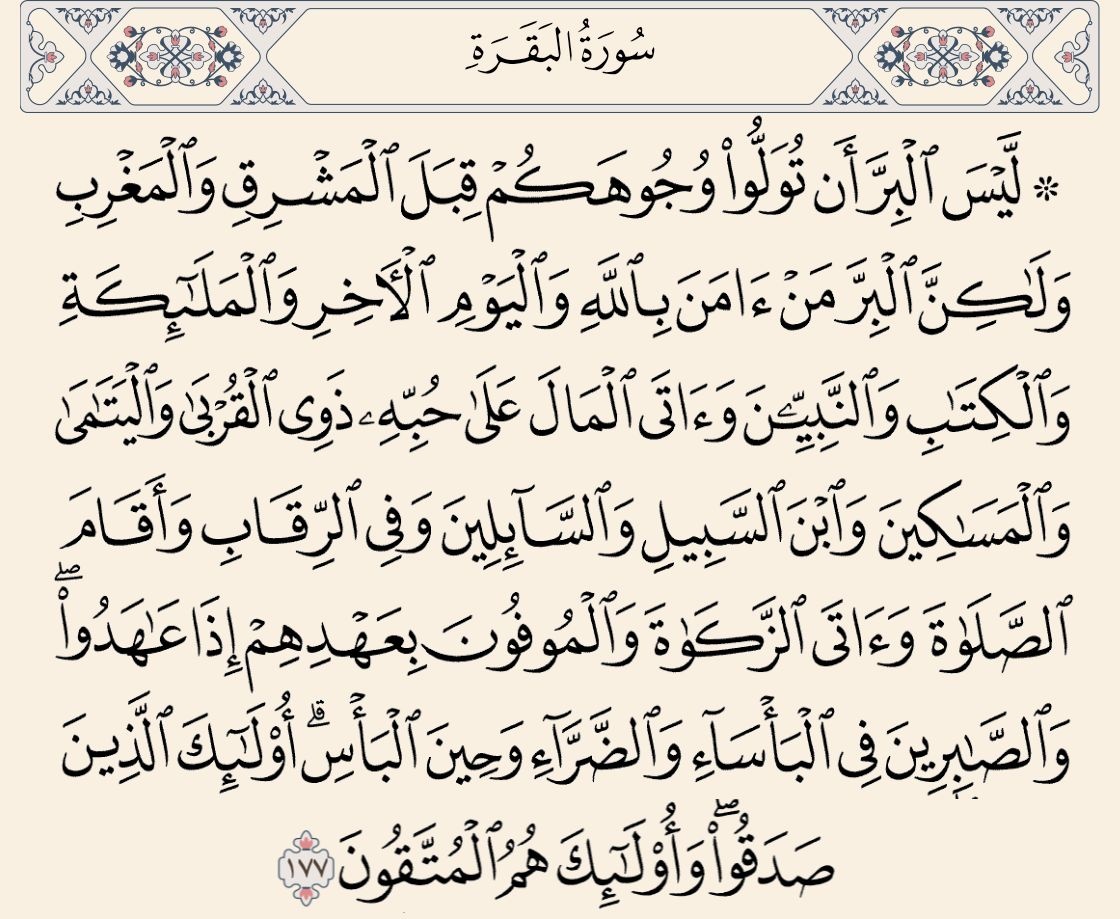 سُورَةُ البَقَرَةِ
۞ لَّيۡسَ ٱلۡبِرَّ أَن تُوَلُّواْ وُجُوهَكُمۡ قِبَلَ ٱلۡمَشۡرِقِ وَٱلۡمَغۡرِبِ
وَلَٰكِنَّ ٱلۡبِرَّ مَنۡ ءَامَنَ بِٱللَّهِ وَٱلۡيَوۡمِ ٱلۡأٓخِرِ وَٱلۡمَلَٰٓئِكَةِ
وَٱلۡكِتَٰبِ وَٱلنَّبِيِّـۧنَ وَءَاتَى ٱلۡمَالَ عَلَىٰ حُبِّهِۦ ذَوِي ٱلۡقُرۡبَىٰ وَٱلۡيَتَٰمَىٰ
وَٱلۡمَسَٰكِينَ وَٱبۡنَ ٱلسَّبِيلِ وَٱلسَّآئِلِينَ وَفِي ٱلرِّقَابِ وَأَقَامَ
ٱلصَّلَوٰةَ وَءَاتَى ٱلزَّكَوٰةَ وَٱلۡمُوفُونَ بِعَهۡدِهِمۡ إِذَا عَٰهَدُواْۖ
وَٱلصَّٰبِرِينَ فِي ٱلۡبَأۡسَآءِ وَٱلضَّرَّآءِ وَحِينَ ٱلۡبَأۡسِۗ أُوْلَٰٓئِكَ ٱلَّذِينَ
صَدَقُواْۖ وَأُوْلَٰٓئِكَ هُمُ ٱلۡمُتَّقُونَ ١٧٧